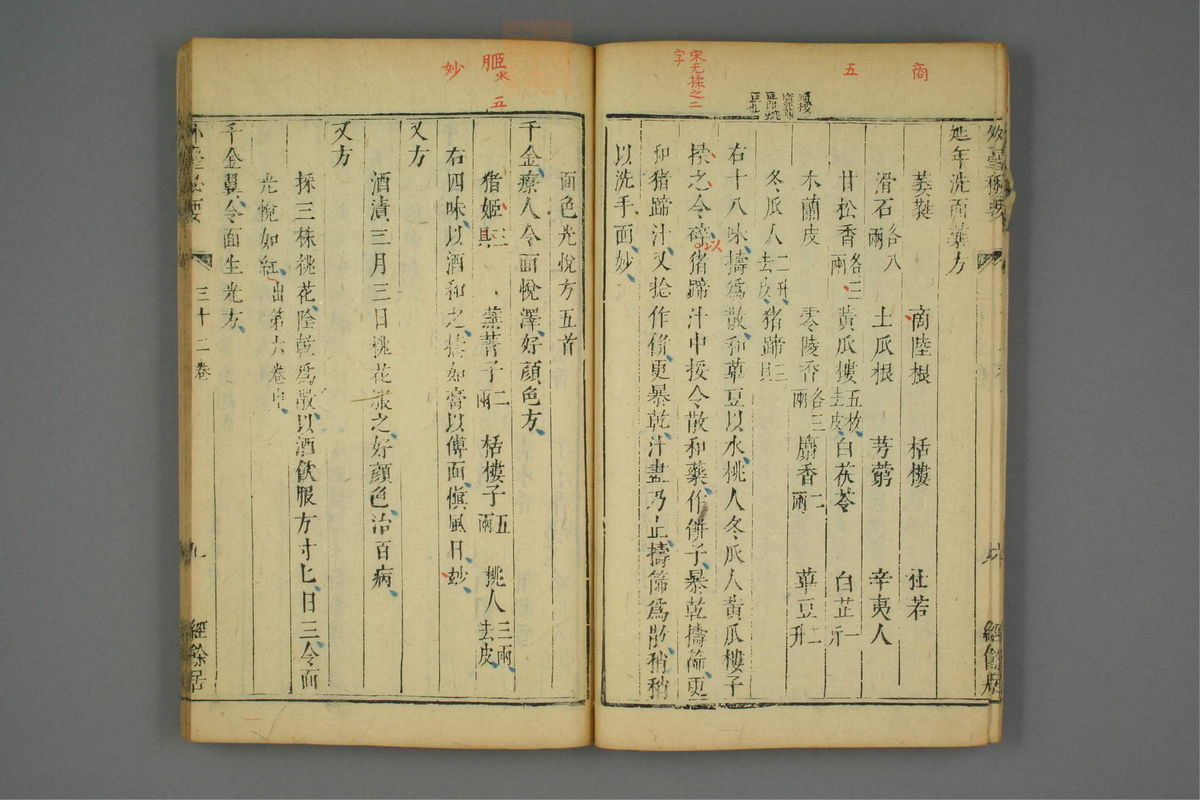 商
五
宋无揉之二
字
外臺秘要
延年洗面藥方
萎蕤 商陸根 栝樓 杜若
滑石各八兩 土瓜根 芎藭 辛夷人
甘松香各三兩 黃瓜樓五枚去皮 白茯苓 白芷一斤
木蘭皮 零陵香各三兩 麝香二兩 蓽豆二升
冬瓜人二升去皮 猪蹄三具
右十八味擣為散和蓽豆以水桃人冬瓜人黃瓜樓子
揉之令碎猪蹄汁中挼令散和藥作餅子暴乾擣篩更
和猪蹄汁又捻作餅更暴乾汁盡乃止擣篩為散稍稍
以洗手面妙
經餘居
以
宋
五
妙
面色光悅方五首
千金療人令面悅澤好顏色方
猪姬三具 蕪菁子二兩 栝樓子五兩 桃人三兩去皮
右四味以酒和之擣如膏以傅面慎風日妙
又方
酒漬三月三日桃花服之好顏色治百病
又方
採三株桃花陰乾為散以酒飲服方寸匕日三令面
光悅如紅出第六卷中
千金翼令面生光方
外臺秘要 三十二卷 九 經餘居